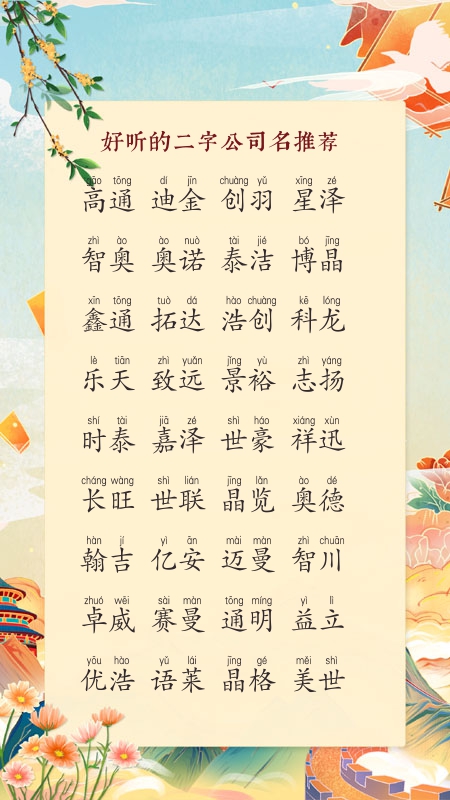 好听的二字公司名推荐
gāo tōng dí jīn chuàng yǔ xīng zé
高通 迪金 创羽 星泽
zhì ào ào nuò tài jié bó jīng
智奥 奥诺 泰洁 博晶
xīn tōng tuò dá hào chuàng kē lóng
鑫通 拓达 浩创 科龙
lè tiān zhì yuǎn jǐng yù zhì yáng
乐天 致远 景裕 志扬
shí tài jiā zé shì háo xiáng xùn
时泰 嘉泽 世豪 祥迅
cháng wàng shì lián jīng lǎn ào dé
长旺 世联 晶览 奥德
hàn jí yì ān mài màn zhì chuān
翰吉 亿安 迈曼 智川
zhuó wēi sài màn tōng míng yì lì
卓威 赛曼 通明 益立
yōu hào yǔ lái jīng gé měi shì
优浩 语莱 晶格 美世